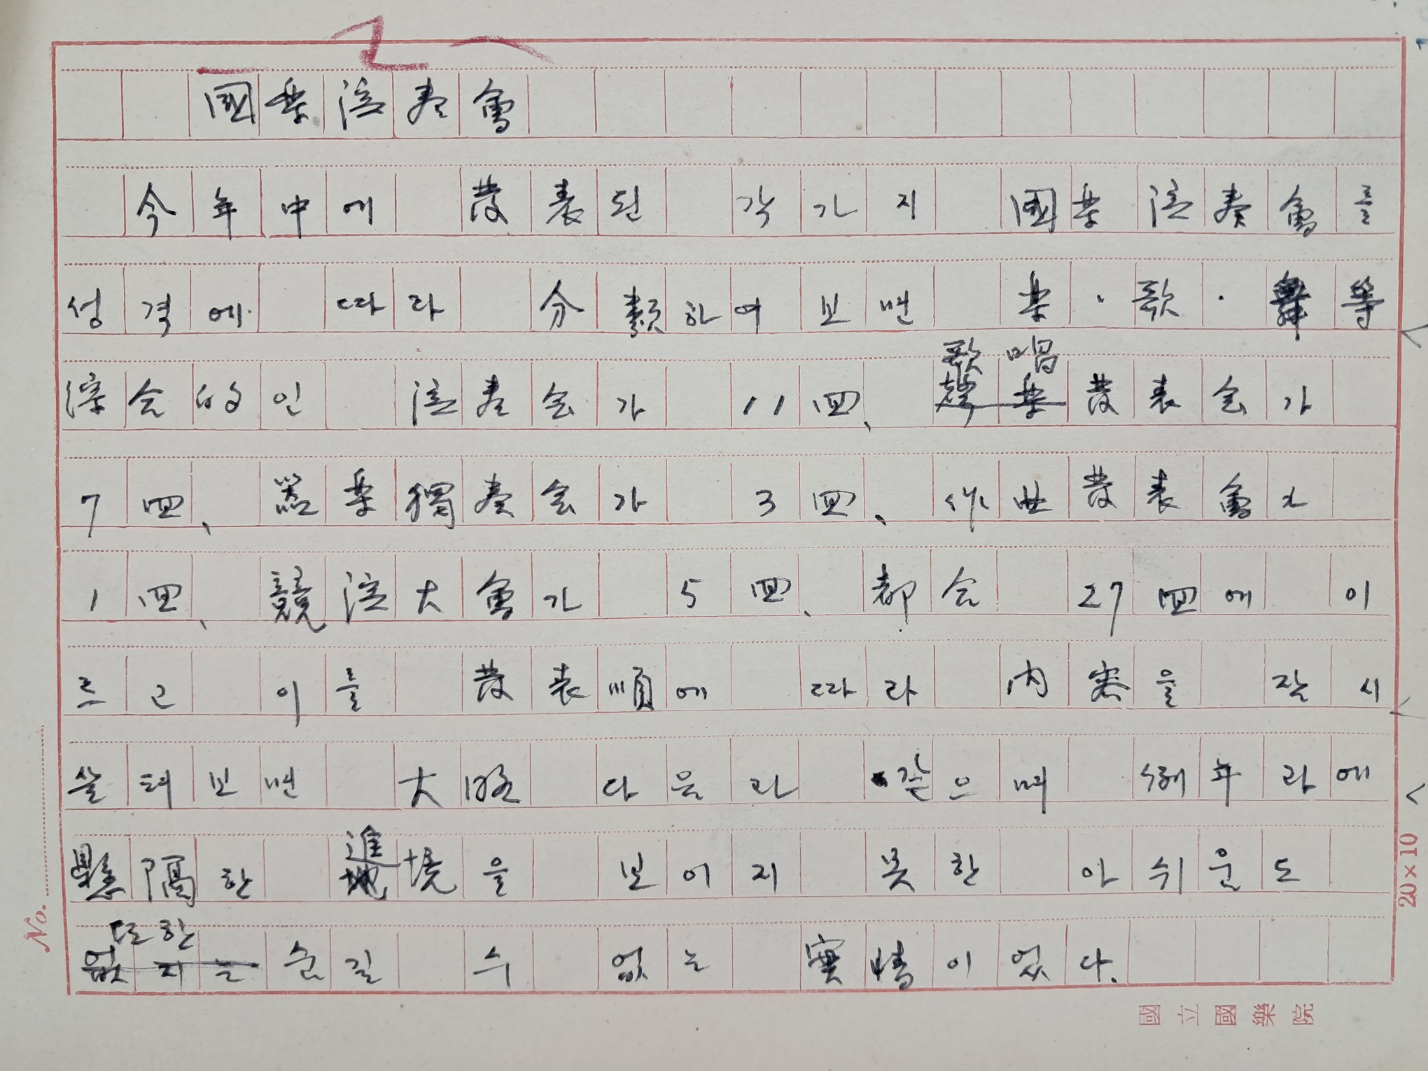 國樂演奏會
今年中에 發表된 각가지 國樂演奏會를
성격에 따라 分類하여 보면 樂·歌·舞等
綜合的인 演奏会가 11回、歌唱發表会가
7回、器樂獨奏会가 3回、作曲發表會가
1回、競演大會가 5回、都合 27回에 이
르고 이를 發表順에 따라 內容을 잠시
살펴보면 大略 다음과 같으며 例年과에
懸隔한 進境을 보이지 못한 아쉬움도
또한 숨길 수 없는 實情이었다.
No.
20×10
國立國樂院